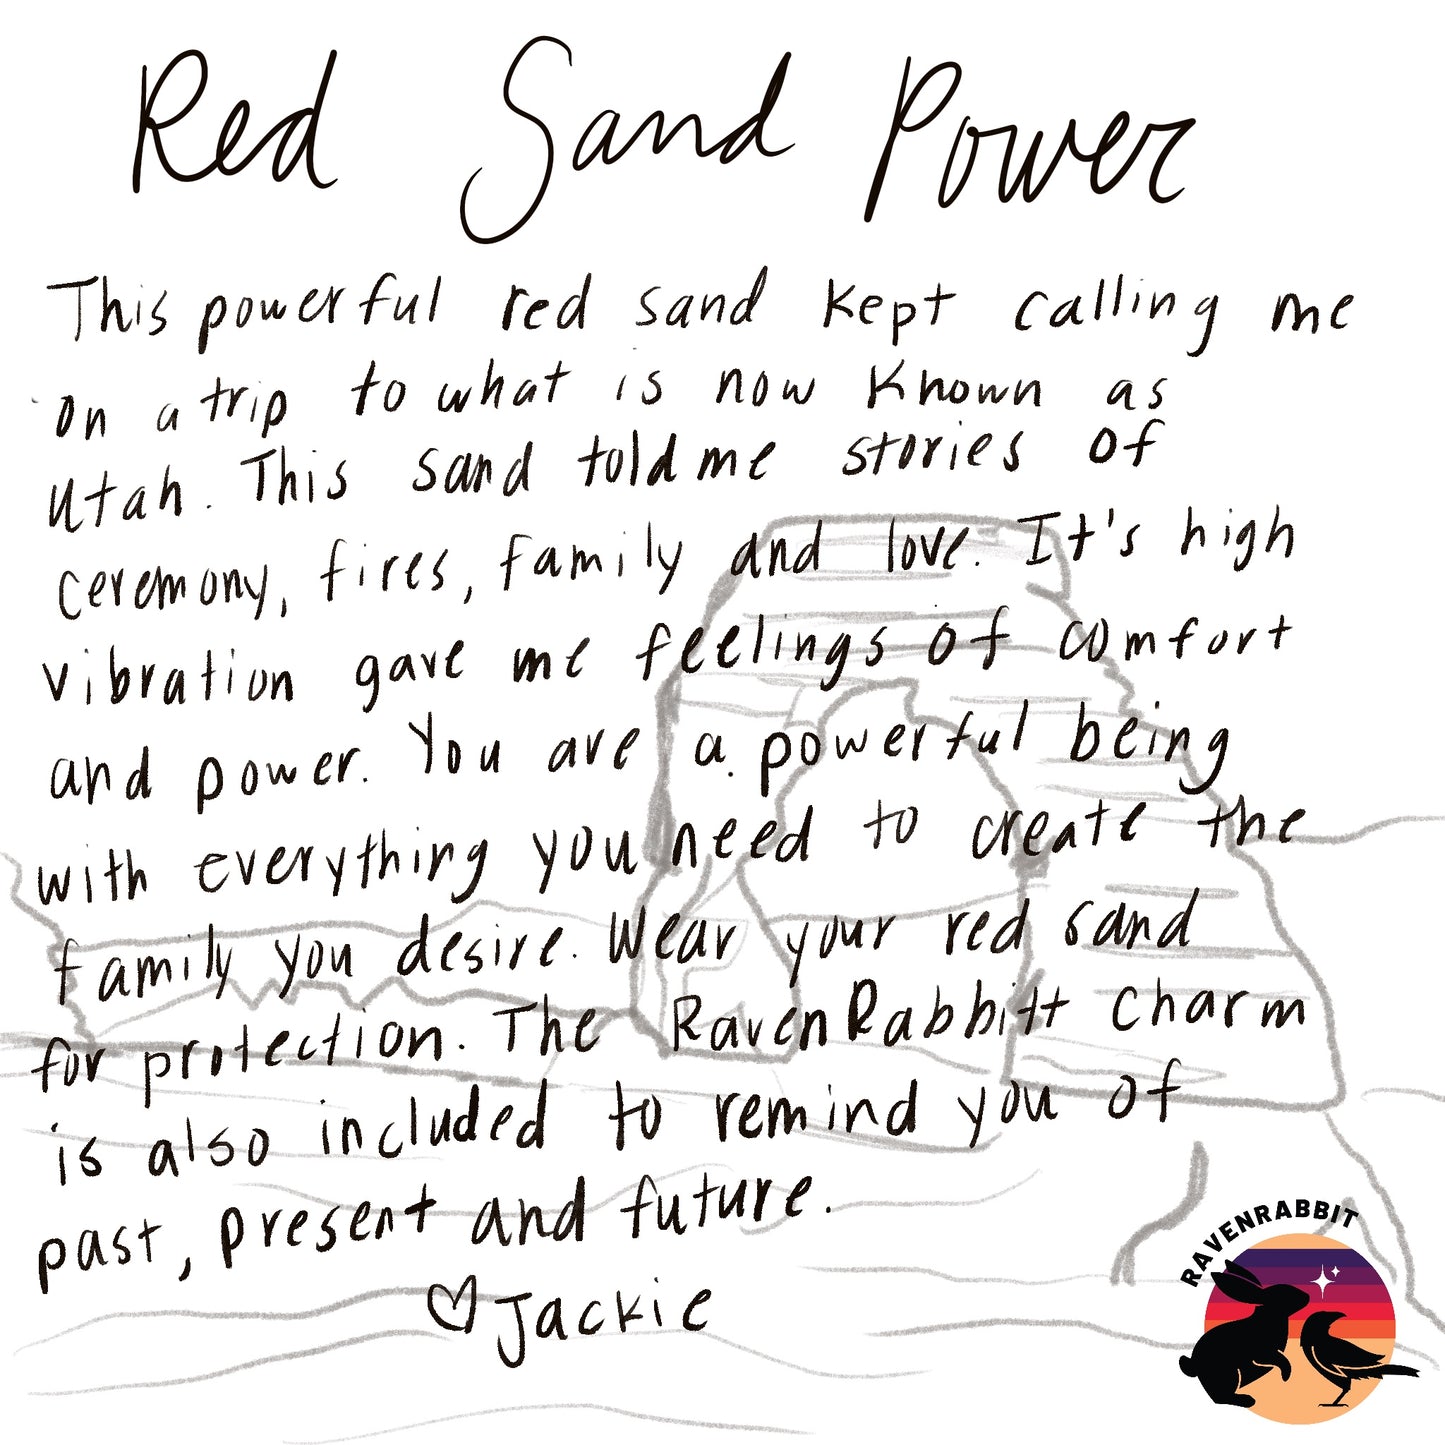 Red Sand Power
This powerful red sand kept calling me
on a trip to what is now known as
Utah. This sand told me stories of
ceremony, fires, family and love. It's high
vibration gave me feelings of comfort
and power. You are a powerful being
with everything you need to create the
family you desire. Wear your red sand
for protection. The RavenRabbitt charm
is also included to remind you of
past, present and future.
♡ Jackie
RAVENRABBIT